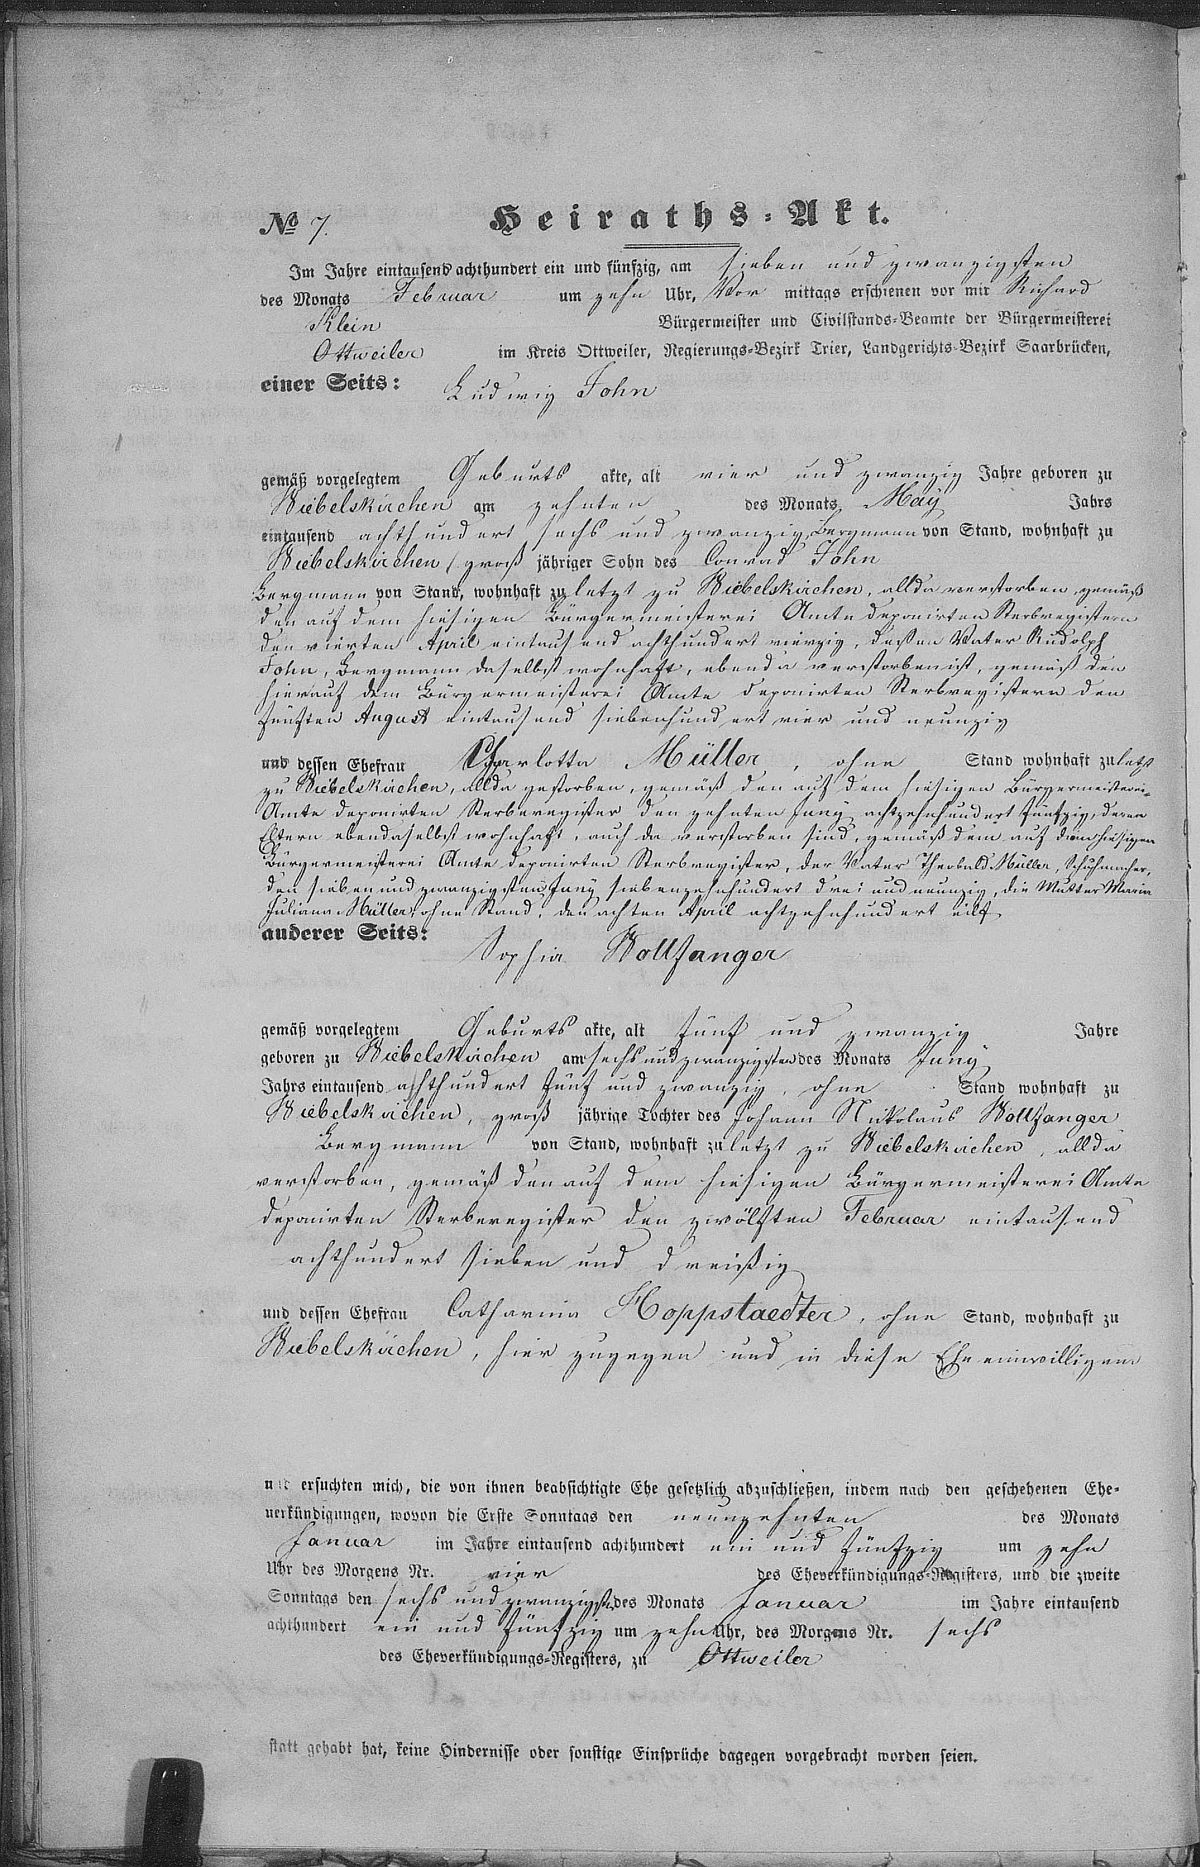 № 7. Heiraths-Akt.
Im Jahre eintausend achthundert ein und fünfzig, am sieben und zwanzigsten
des Monats Februar um zehn Uhr, Vor mittags erschienen vor mir Richard
Klein Bürgermeister und Civilstands-Beamte der Bürgermeisterei
Ottweiler im Kreis Ottweiler, Regierungs-Bezirk Trier, Landgerichts-Bezirk Saarbrücken,
einer Seits: Ludwig John
gemäß vorgelegtem Geburts akte, alt vier und zwanzig Jahre geboren zu
Wiebelskirchen am zehnten des Monats May Jahrs
eintausend achthundert sechs und zwanzig, Bergmann von Stand, wohnhaft zu
Wiebelskirchen, groß jähriger Sohn des Conrad John
Bergmann von Stand, wohnhaft zuletzt zu Wiebelskirchen, allda verstorben, gemäß
den auf dem hiesigen Bürgermeisterei Amte deponirten Sterbregistern
den vierten April eintausend achthundert vierzig, dessen Vater Rudolph
John, Bergmann daselbst wohnhaft, ebenda verstorben ist, gemäß den
hier auf dem Bürgermeisterei Amte deponirten Sterbregistern den
fünften August eintausend siebenhundert vier und neunzig
und dessen Ehefrau Charlotta Müller, ohne Stand wohnhaft zuletzt
zu Wiebelskirchen, allda gestorben, gemäß den auf dem hiesigen Bürgermeisterei-
Amte deponirten Sterberegister den zehnten Juny achtzehnhundert fünfzig, deren
Eltern ebendaselbst wohnhaft, auch da verstorben sind, gemäß dem auf dem hiesigen
Bürgermeisterei Amte deponirten Sterbregister, der Vater Theobald Müller, Schuhmacher,
den sieben und zwanzigsten Juny siebenzehnhundert drei und neunzig, die Mutter Maria
Juliana Müller, ohne Stand, den achten April achtzehnhundert eilf
anderer Seits: Sophia Wollfanger
gemäß vorgelegtem Geburts akte, alt fünf und zwanzig Jahre
geboren zu Wiebelskirchen am sechs und zwanzigsten des Monats Juny
Jahrs eintausend achthundert fünf und zwanzig, ohne Stand wohnhaft zu
Wiebelskirchen, groß jährige Tochter des Johann Nikolaus Wollfanger
Bergmann von Stand, wohnhaft zuletzt zu Wiebelskirchen, allda
verstorben, gemäß den auf dem hiesigen Bürgermeisterei Amte
deponirten Sterberegister den zwölften Februar eintausend
achthundert sieben und dreißig
und dessen Ehefrau Catharina Hoppstaedter, ohne Stand, wohnhaft zu
Wiebelskirchen, hier zugegen und in diese Ehe einwilligend
und ersuchten mich, die von ihnen beabsichtigte Ehe gesetzlich abzuschließen, indem nach den geschehenen Ehe-
verkündigungen, wovon die Erste Sonntags den neunzehnten des Monats
Januar im Jahre eintausend achthundert ein und fünfzig um zehn
Uhr des Morgens Nr. vier des Eheverkündigungs-Registers, und die zweite
Sonntags den sechs und zwanzigsten des Monats Januar im Jahre eintausend
achthundert ein und fünfzig um zehn Uhr, des Morgens Nr. sechs
des Eheverkündigungs-Registers, zu Ottweiler
statt gehabt hat, keine Hindernisse oder sonstige Einsprüche dagegen vorgebracht worden seien.